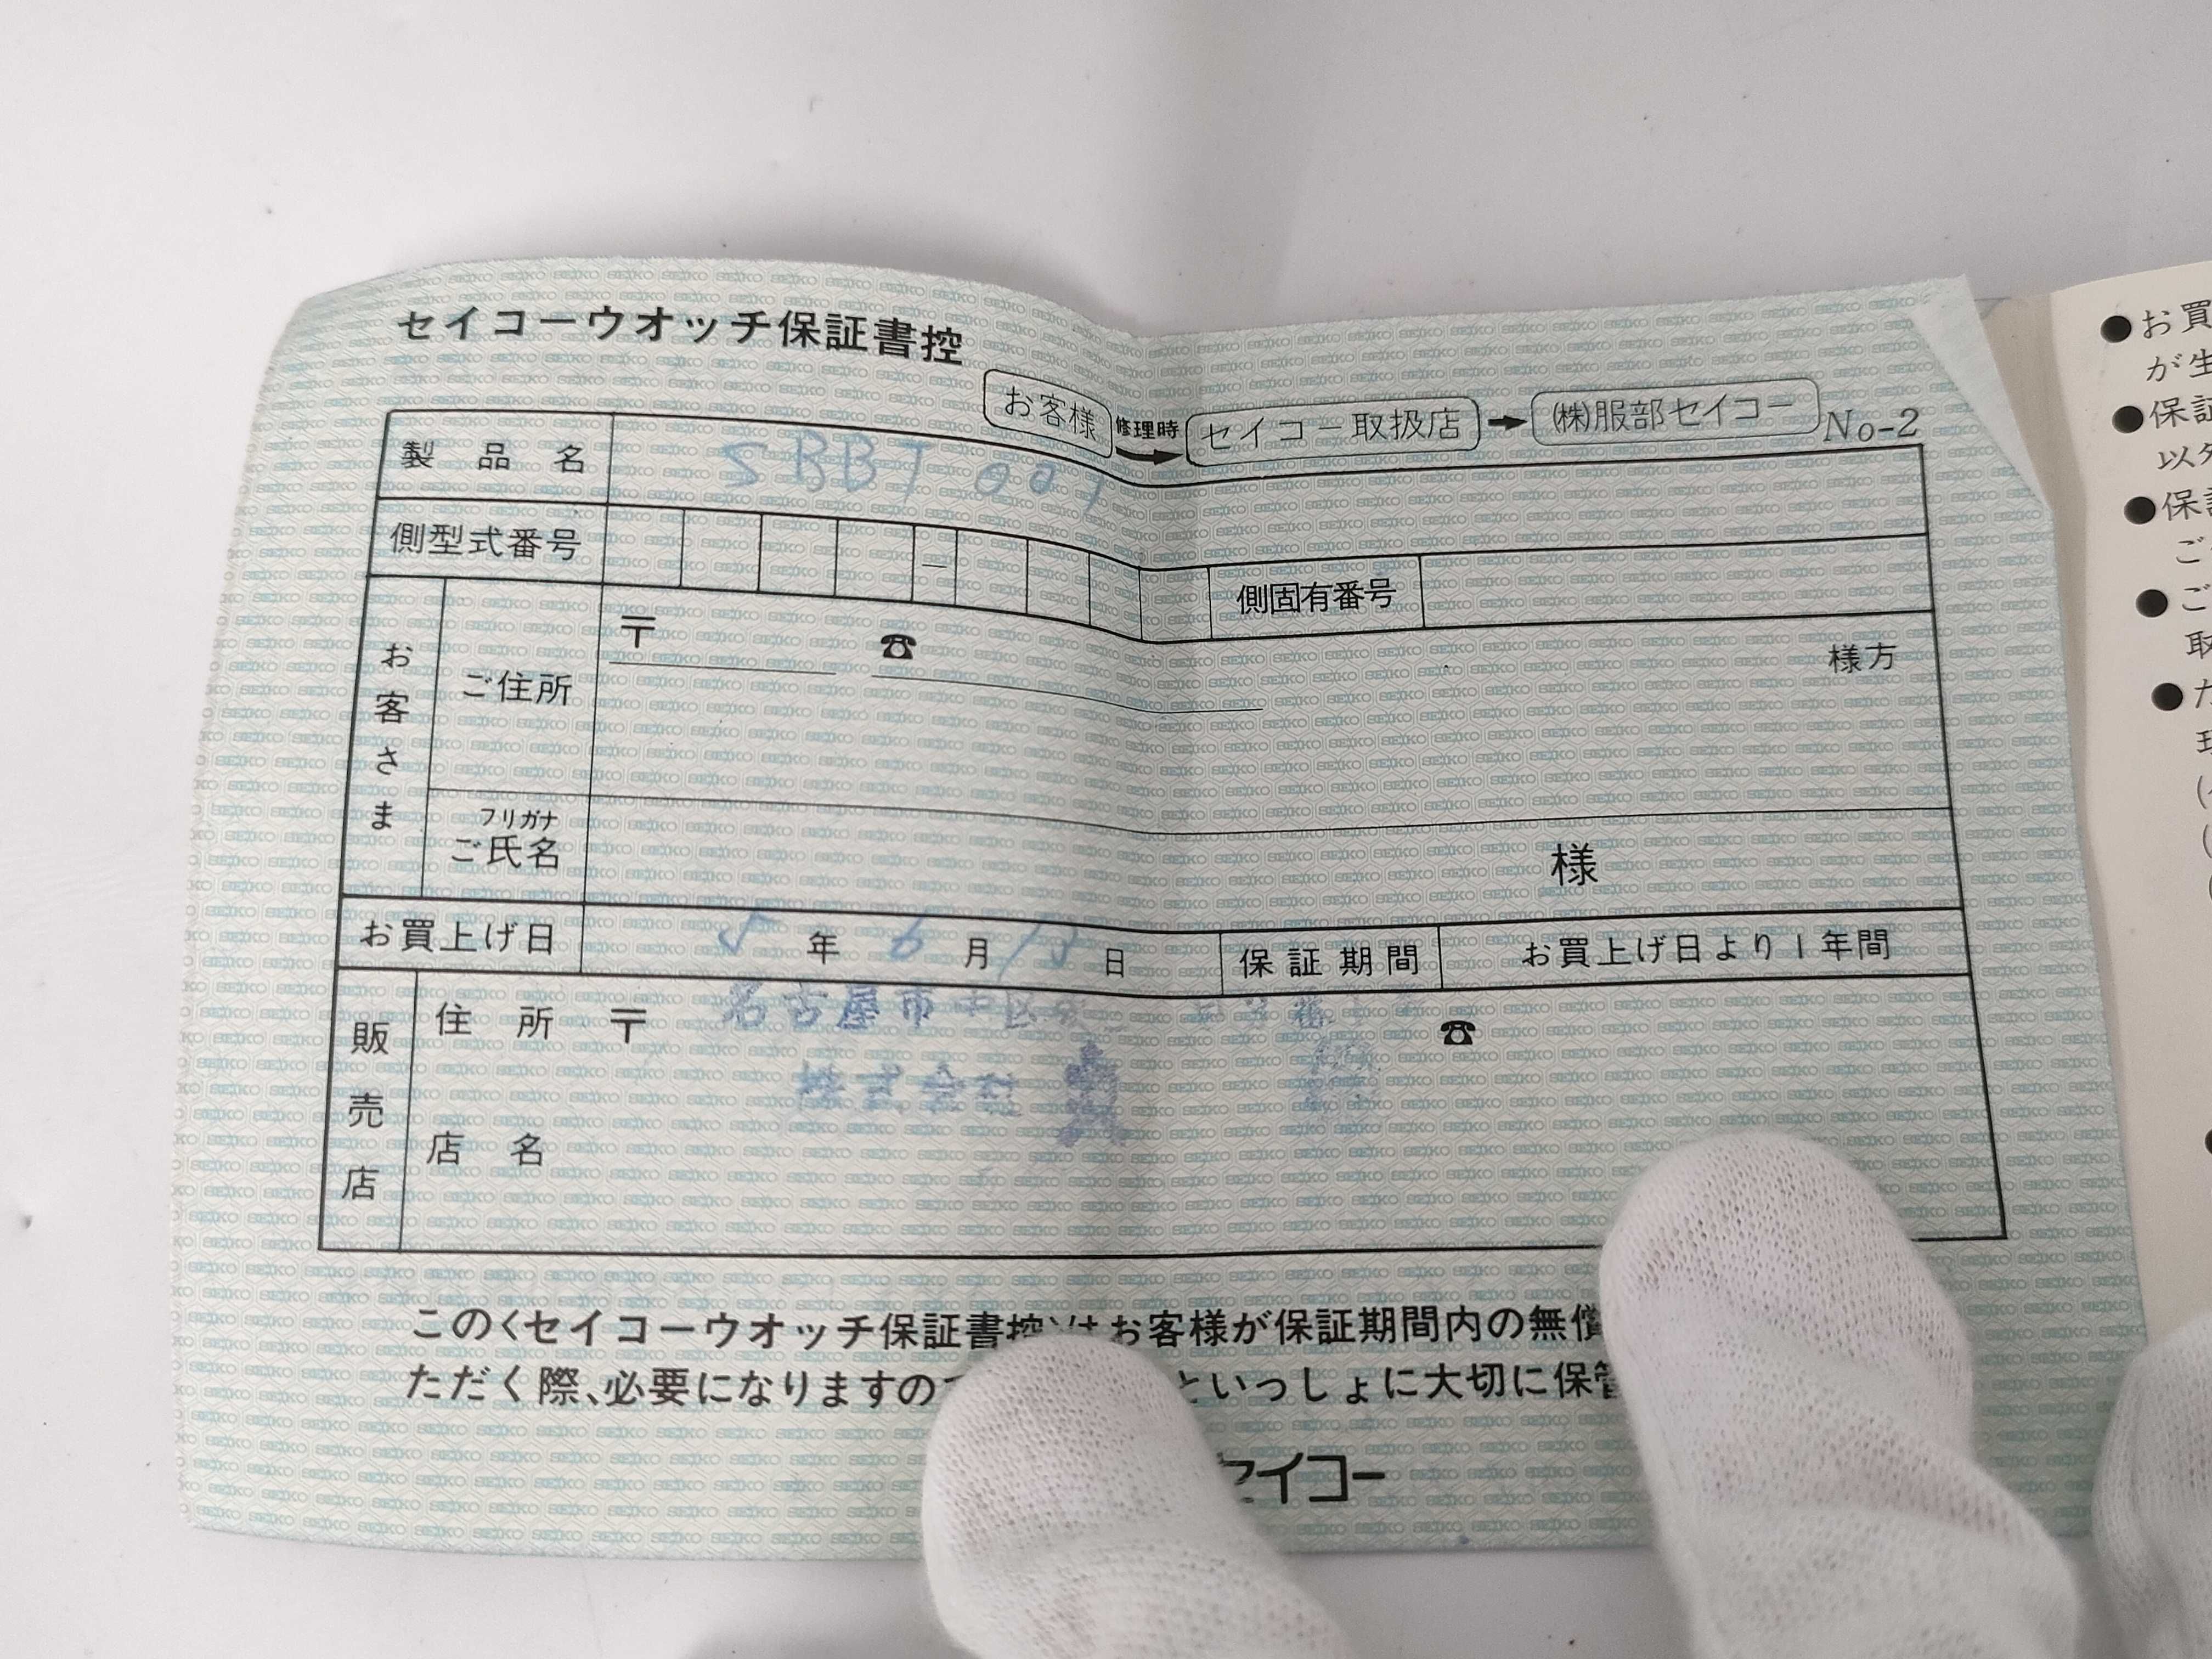 セイコーウオッチ保証書控
お客様 修理時 セイコー取扱店 ➡ ㈱服部セイコー No-2
製品名 SBBT 001
側型式番号 – 側固有番号
お客さま
ご住所 〒 ☎ 様方
フリガナ
ご氏名 様
お買上げ日 5年 6月 13日 保証期間 お買上げ日より1年間
販売店
住所 〒 名古屋市中区 ☎
株式会社
店名
このくセイコーウオッチ保証書控〉はお客様が保証期間内の無償
ただく際、必要になりますの といっしょに大切に保管
セイコー
●お買
が生
●保証
以外
●保証
ご
●ご
取
●た
理